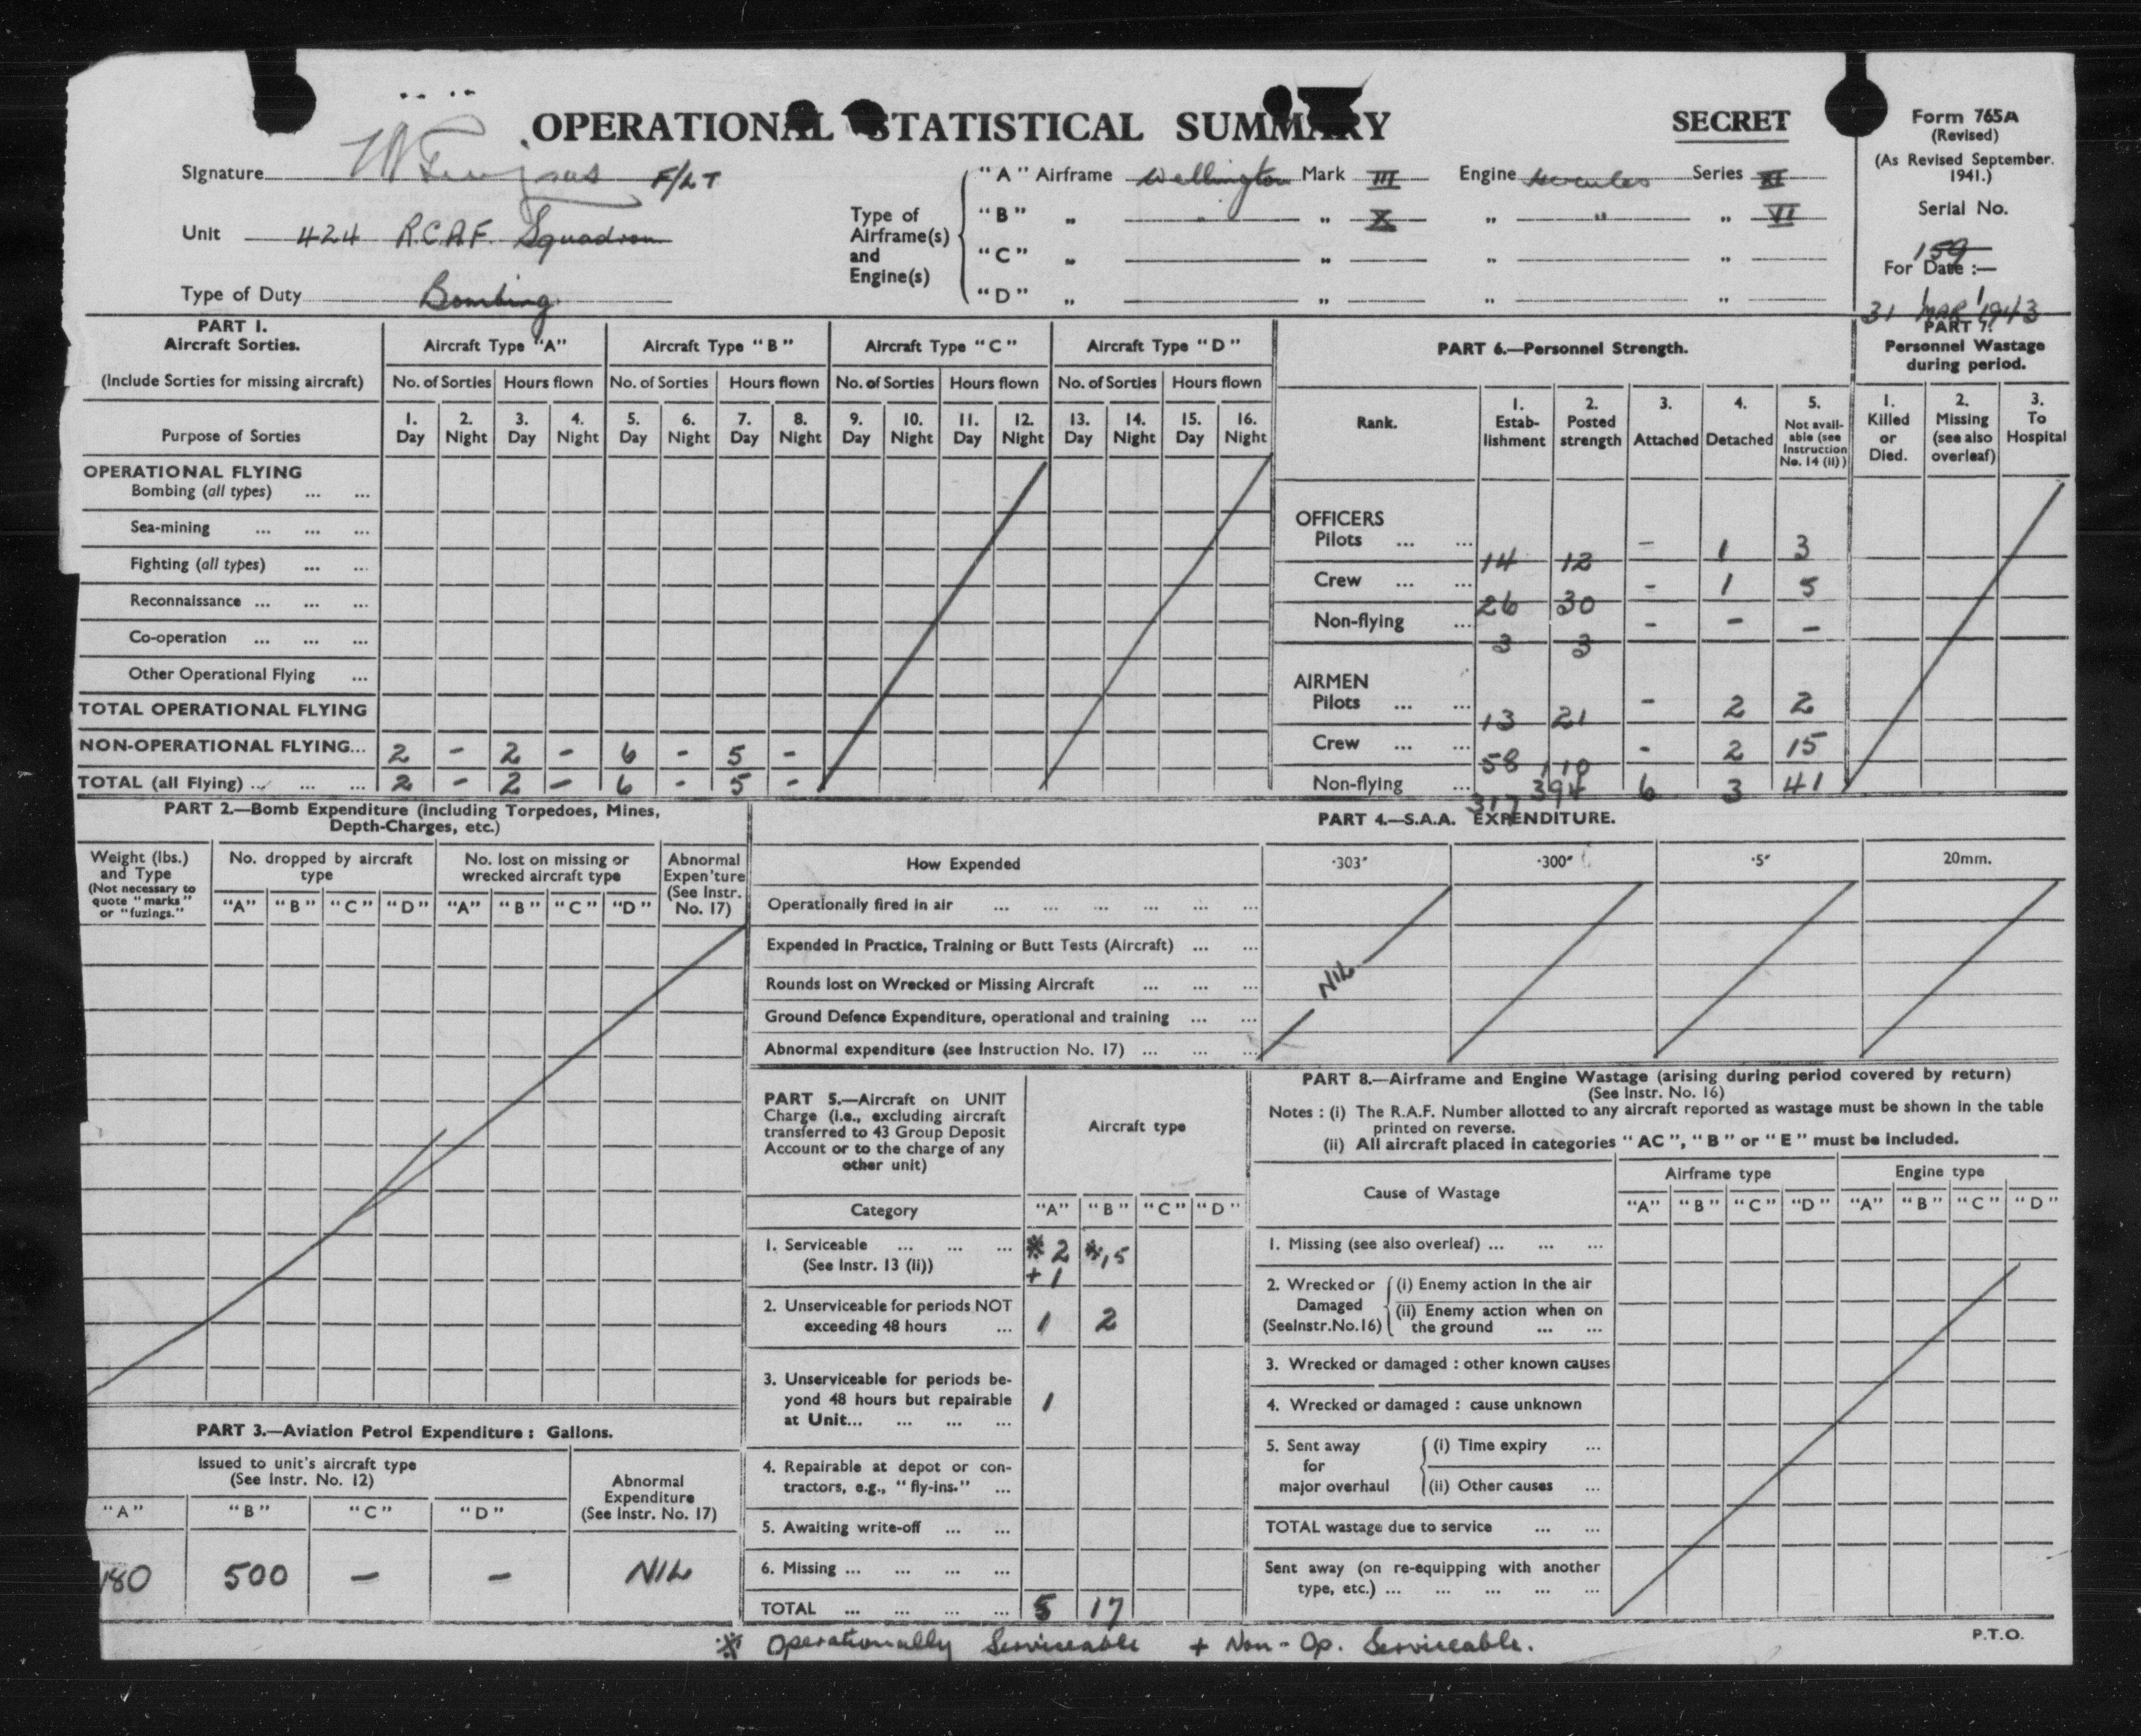 OPERATIONAL STATISTICAL SUMMARY
SECRET
Form 765A
(Revised)
(As Revised September.
1941.)
Serial No.
159
For Date :—
31 MAR 1943
Signature F/LT
Unit 424 R.C.A.F. Squadron
Type of Duty Bombing
Type of
Airframe(s)
and
Engine(s)
"A" Airframe Wellington Mark III Engine Hercules Series XI
"B" „ " „ X „ " „ VI
"C" „ „ „ „
"D" „ „ „ „
PART 1.
Aircraft Sorties.
(Include Sorties for missing aircraft)
Aircraft Type "A" Aircraft Type "B" Aircraft Type "C" Aircraft Type "D"
No. of Sorties Hours flown No. of Sorties Hours flown No. of Sorties Hours flown No. of Sorties Hours flown
Purpose of Sorties
1. 2. 3. 4. 5. 6. 7. 8. 9. 10. 11. 12. 13. 14. 15. 16.
Day Night Day Night Day Night Day Night Day Night Day Night Day Night Day Night
OPERATIONAL FLYING
Bombing (all types) ... ...
Sea-mining ... ... ...
Fighting (all types) ... ...
Reconnaissance ... ... ...
Co-operation ... ... ...
Other Operational Flying ...
TOTAL OPERATIONAL FLYING
NON-OPERATIONAL FLYING... 2 - 2 - 6 - 5 -
TOTAL (all Flying) ... ... ... 2 - 2 - 6 - 5 -
PART 6.—Personnel Strength.
Rank.
1. Estab-lishment
2. Posted strength
3. Attached
4. Detached
5. Not avail-able (see Instruction No. 14 (ii))
OFFICERS
Pilots ... ... 14 12 - 1 3
Crew ... ... 26 30 - 1 5
Non-flying ... 3 3 - - -
AIRMEN
Pilots ... ... 13 21 - 2 2
Crew ... ... 58 110 - 2 15
Non-flying ... 317 394 6 3 41
PART 7.
Personnel Wastage
during period.
1. Killed or Died.
2. Missing (see also overleaf)
3. To Hospital
PART 2.—Bomb Expenditure (including Torpedoes, Mines,
Depth-Charges, etc.)
Weight (lbs.)
and Type
(Not necessary to
quote "marks"
or "fuzings."
No. dropped by aircraft
type
No. lost on missing or
wrecked aircraft type
Abnormal
Expen'ture
(See Instr.
No. 17)
"A" "B" "C" "D" "A" "B" "C" "D"
PART 4.—S.A.A. EXPENDITURE.
How Expended ·303" ·300" ·5" 20mm.
Operationally fired in air ... ... ... ... ... ...
Expended in Practice, Training or Butt Tests (Aircraft) ... ...
Rounds lost on Wrecked or Missing Aircraft ... ... ...
NIL
Ground Defence Expenditure, operational and training ... ...
Abnormal expenditure (see Instruction No. 17) ... ... ...
PART 5.—Aircraft on UNIT
Charge (i.e., excluding aircraft
transferred to 43 Group Deposit
Account or to the charge of any
other unit)
Aircraft type
Category "A" "B" "C" "D"
1. Serviceable ... ... ... * 2 * 15
(See Instr. 13 (ii)) + 1
2. Unserviceable for periods NOT
exceeding 48 hours ... 1 2
3. Unserviceable for periods be-
yond 48 hours but repairable
at Unit... ... ... ... 1
4. Repairable at depot or con-
tractors, e.g., "fly-ins." ...
5. Awaiting write-off ... ...
6. Missing ... ... ... ...
TOTAL ... ... ... ... 5 17
PART 8.—Airframe and Engine Wastage (arising during period covered by return)
(See Instr. No. 16)
Notes : (i) The R.A.F. Number allotted to any aircraft reported as wastage must be shown in the table
printed on reverse.
(ii) All aircraft placed in categories "AC", "B" or "E" must be included.
Cause of Wastage Airframe type Engine type
"A" "B" "C" "D" "A" "B" "C" "D"
1. Missing (see also overleaf) ... ... ...
2. Wrecked or Damaged (See Instr. No. 16)
(i) Enemy action in the air
(ii) Enemy action when on
the ground ... ...
3. Wrecked or damaged : other known causes
4. Wrecked or damaged : cause unknown
5. Sent away for major overhaul
(i) Time expiry ...
(ii) Other causes ...
TOTAL wastage due to service ... ...
Sent away (on re-equipping with another
type, etc.) ... ... ... ... ...
PART 3.—Aviation Petrol Expenditure : Gallons.
Issued to unit's aircraft type
(See Instr. No. 12)
Abnormal
Expenditure
(See Instr. No. 17)
"A" "B" "C" "D"
180 500 — — NIL
* Operationally Serviceable + Non-Op. Serviceable.
P.T.O.